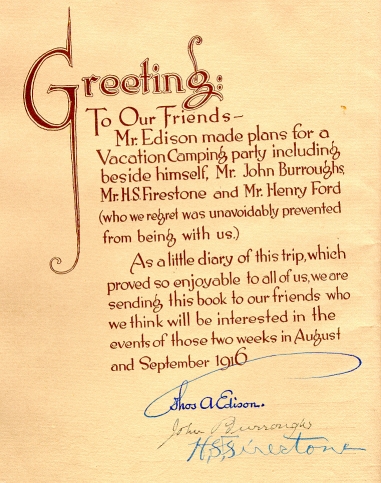 Greeting:
To Our Friends—
Mr. Edison made plans for a
Vacation Camping party including
beside himself, Mr. John Burroughs,
Mr. H.S. Firestone and Mr. Henry Ford
(who we regret was unavoidably prevented
from being with us.)
As a little diary of this trip, which
proved so enjoyable to all of us, we are
sending this book to our friends who
we think will be interested in the
events of those two weeks in August
and September 1916
Thos A Edison.
John Burroughs
H.S. Firestone